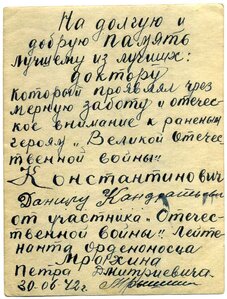 На долгую и
добрую память
лучшему из лучших:
доктору
Который проявлял чрез
мерную заботу и отечес-
кое внимание к раненым
героям „Великой Отече-
ственной войны“
Константинович
Данилу
от участника „Отечес-
твенной войны“ Лейте-
нанта Орденоносца
Петра Дмитриевича
30-06-42 г.